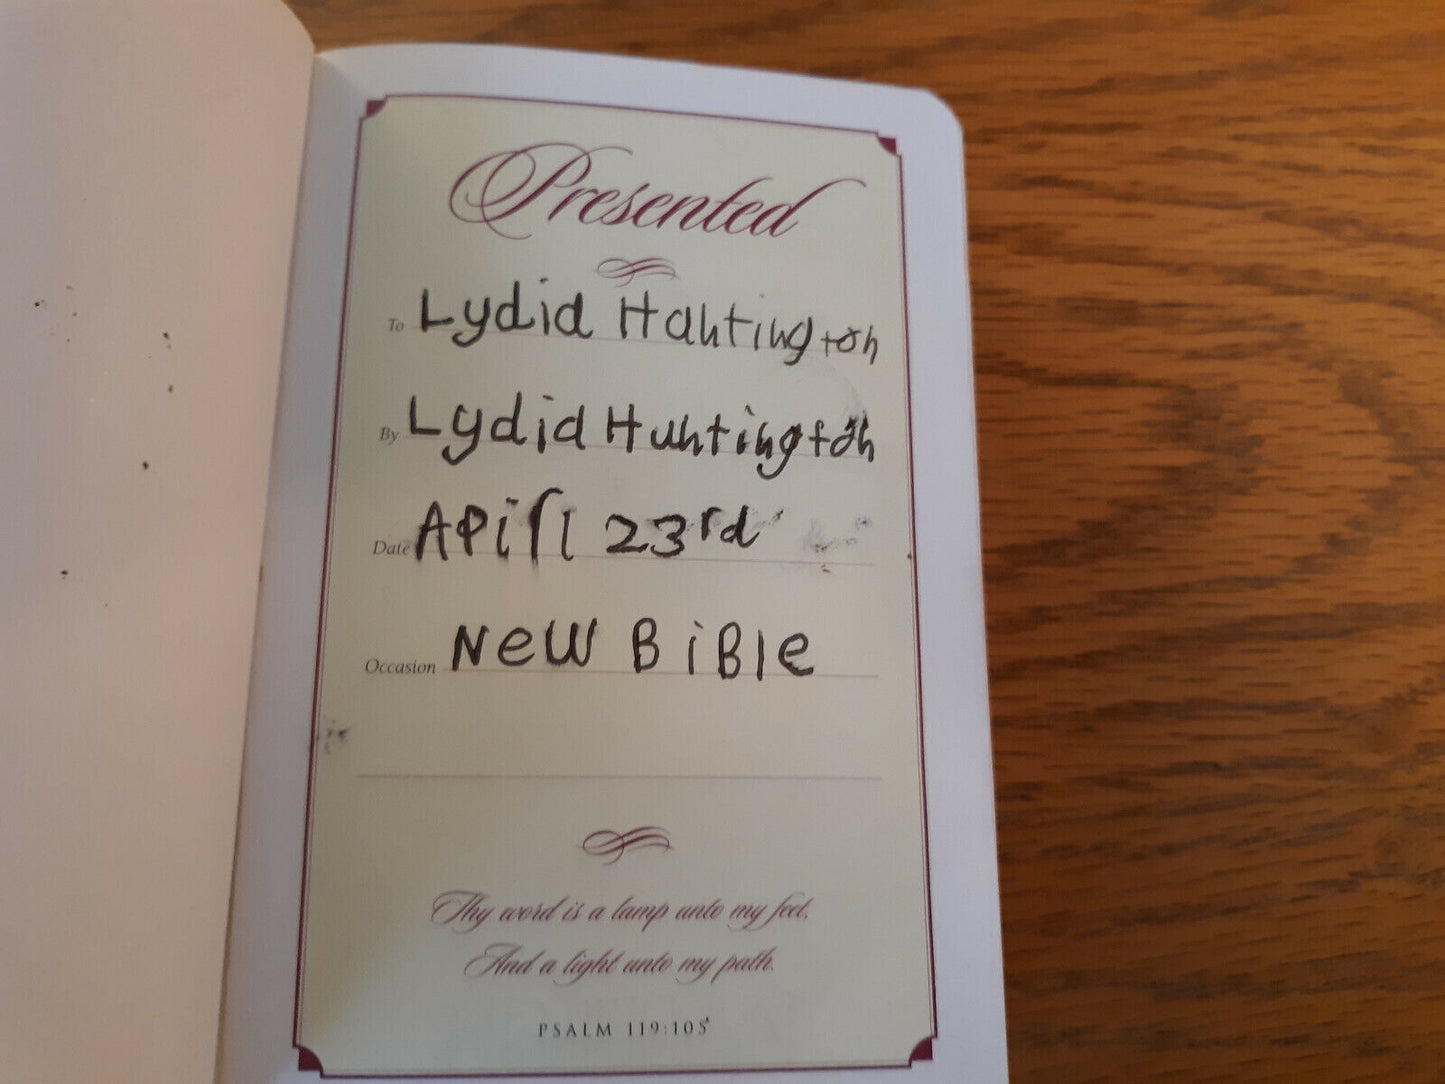 Presented
To Lydid Hahtington
By Lydid Huhtington
Date Apirl 23rd
Occasion New BiBle
Thy word is a lamp unto my feet,
And a light unto my path.
PSALM 119:105